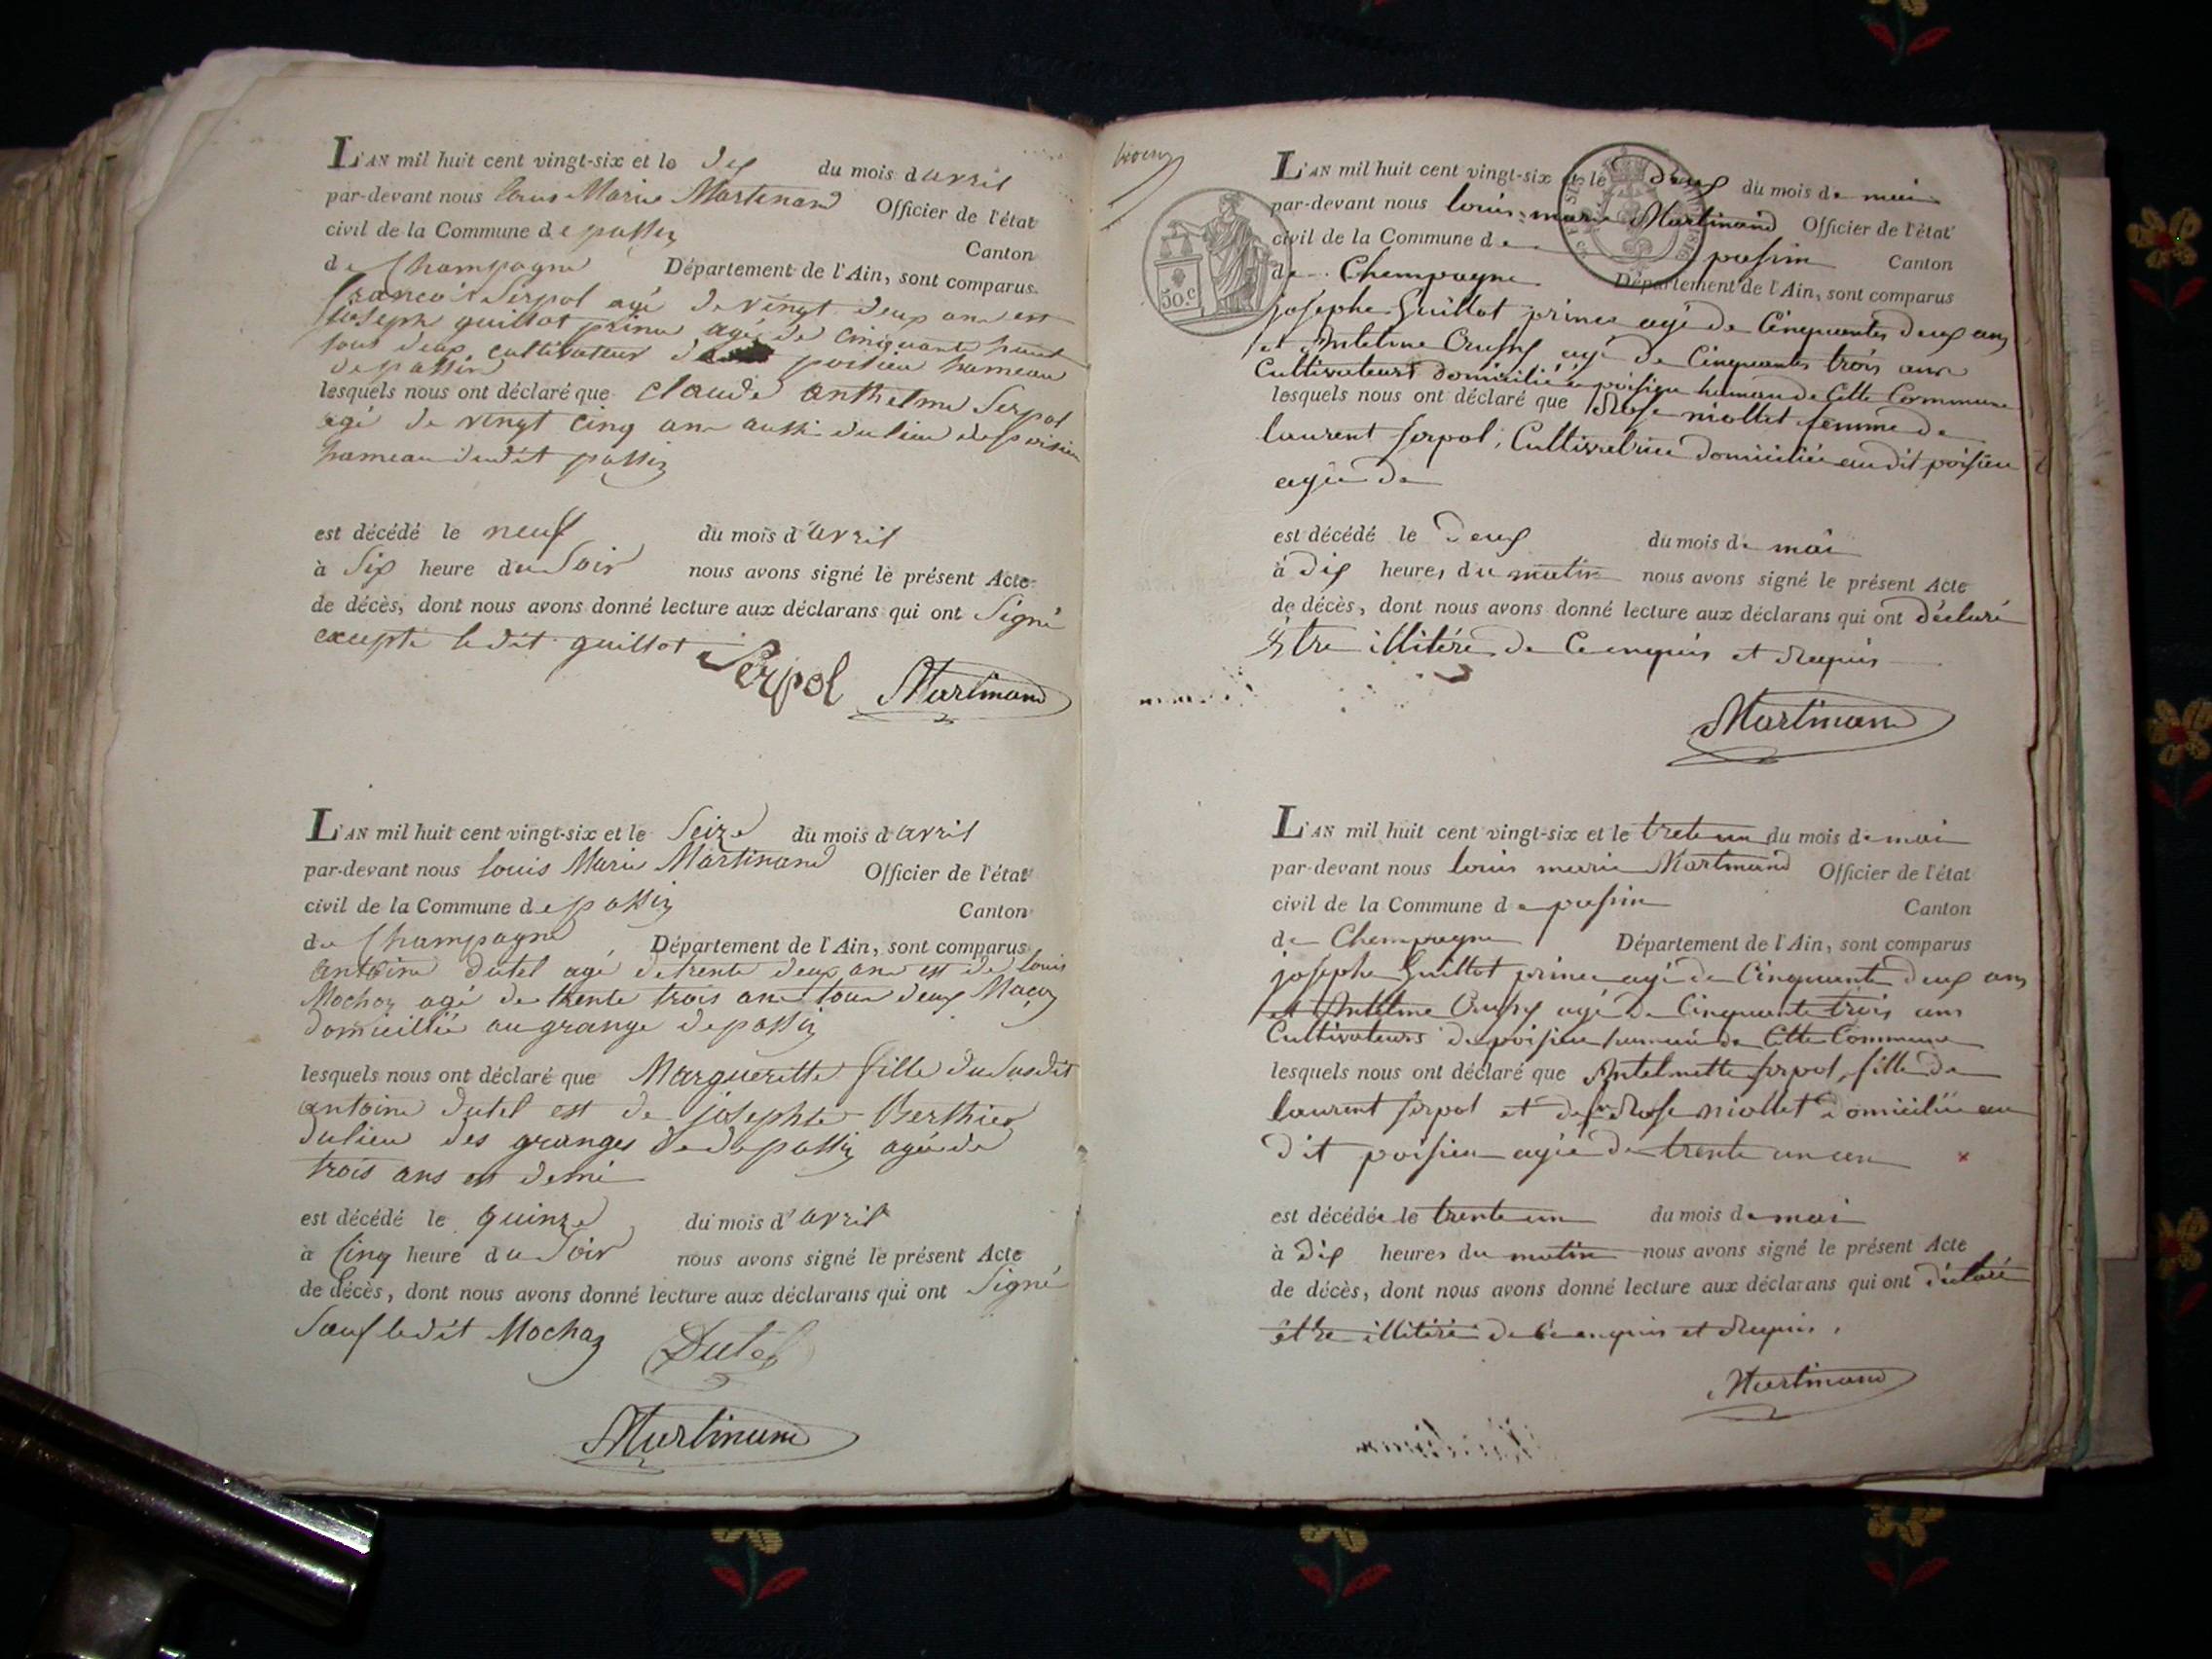 L'AN mil huit cent vingt-six et le dix du mois d'avril
par-devant nous Louis Marie Martinand Officier de l'état
civil de la Commune de passin Canton
de Champagne Département de l'Ain, sont comparus
francois Serpol agé de vingt deux ans est
joseph guillot prince agé de cinquante huit
tous deux cultivateur de poisieu hameau
de passin
lesquels nous ont déclaré que claude anthelme Serpol
agé de vingt cinq ans aussi du lieu de poisieu
hameau du dit passin
est décédé le neuf du mois d'avril
à Six heure du Soir nous avons signé le présent Acte
de décès, dont nous avons donné lecture aux déclarans qui ont Signé
excepté ledit guillot
Serpol Martinand
L'AN mil huit cent vingt-six et le Seize du mois d'avril
par-devant nous Louis Marie Martinand Officier de l'état
civil de la Commune de passin Canton
de Champagne Département de l'Ain, sont comparus
antoine dutel agé de trente deux ans est de louis
Mochaz agé de trente trois ans tous deux Maçon
domicillié au grange de passin
lesquels nous ont déclaré que Marguerette fille du Susdit
antoine dutel est de josephte Berthier
du lieu des granges de passin agée de
trois ans et demi
est décédé le quinze du mois d'avril
à Cinq heure du Soir nous avons signé le présent Acte
de décès, dont nous avons donné lecture aux déclarans qui ont Signé
Sauf ledit Mochaz Dutel
Martinand
L'AN mil huit cent vingt-six et le deux du mois de mai
par-devant nous louis marie Martinand Officier de l'état
civil de la Commune de passin Canton
de Champagne Département de l'Ain, sont comparus
50 c.
josephe Guillot prince agé de Cinquante deux ans
et Antelme agé de Cinquante trois ans
Cultivateurs domicilié à poisieu hameau de Cette Commune
lesquels nous ont déclaré que Rose niollet femme de
laurent serpol, Cultivatrice domiciliée au dit poisieu
agée de
est décédé le deux du mois de mai
à dix heures du matin nous avons signé le présent Acte
de décès, dont nous avons donné lecture aux déclarans qui ont déclaré
être illitéré de Ce enquis et Requis
Martinand
L'AN mil huit cent vingt-six et le trete un du mois de mai
par-devant nous louis marie Martinand Officier de l'état
civil de la Commune de passin Canton
de Champagne Département de l'Ain, sont comparus
josephe Guillot prince agé de Cinquante deux ans
et Antelme agé de Cinquante trois ans
Cultivateurs de poisieu hameau de Cette Commune
lesquels nous ont déclaré que Antelmette serpol, fille de
laurent serpol et de Rose niollet domiciliée au
dit poisieu agée de trente un an
est décédée le trente un du mois de mai
à dix heures du matin nous avons signé le présent Acte
de décès, dont nous avons donné lecture aux déclarans qui ont déclaré
être illitéré de Ce enquis et Requis.
Martinand